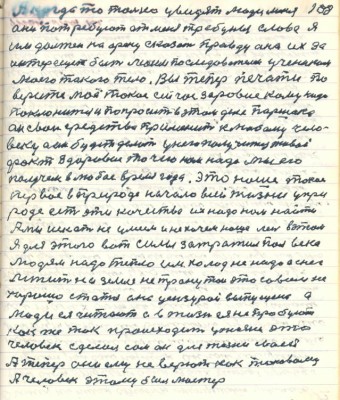 А когда то только увидят люди меня 158
они потребуют от меня трибуны слова я
им должен на сразу сказать правду она их за
интересует быть моим последователем учеником
моего такого тело. Вы тепер печати по
верите мое такое сейчас здоровие кому надо
поклонится и попросить в этом деле Паршека
он свои средства применить к любому чело
веку а он будет делать у него получится живой
факт Здоровия точно нам надо мы его
получем в любое время года. Это наше такое
первое в природе начало всей жизни у при
роде есть эти качества их надо нам найти
А мы искать не умеем и не хочем наша лень в этом
Я для этого вот силы затратил пол века
людям надо тепло им холод не надо а снег
лежит на земле не тронутой это совсем не
хорошо статия она цензурой выпущена а
люди ея читают а в жизнь ея не пробуют
как же так происходит у нас на это
человек сделал сам он для жизни своей
А тепер они ему не верют как таковому
А человек этому был мастер